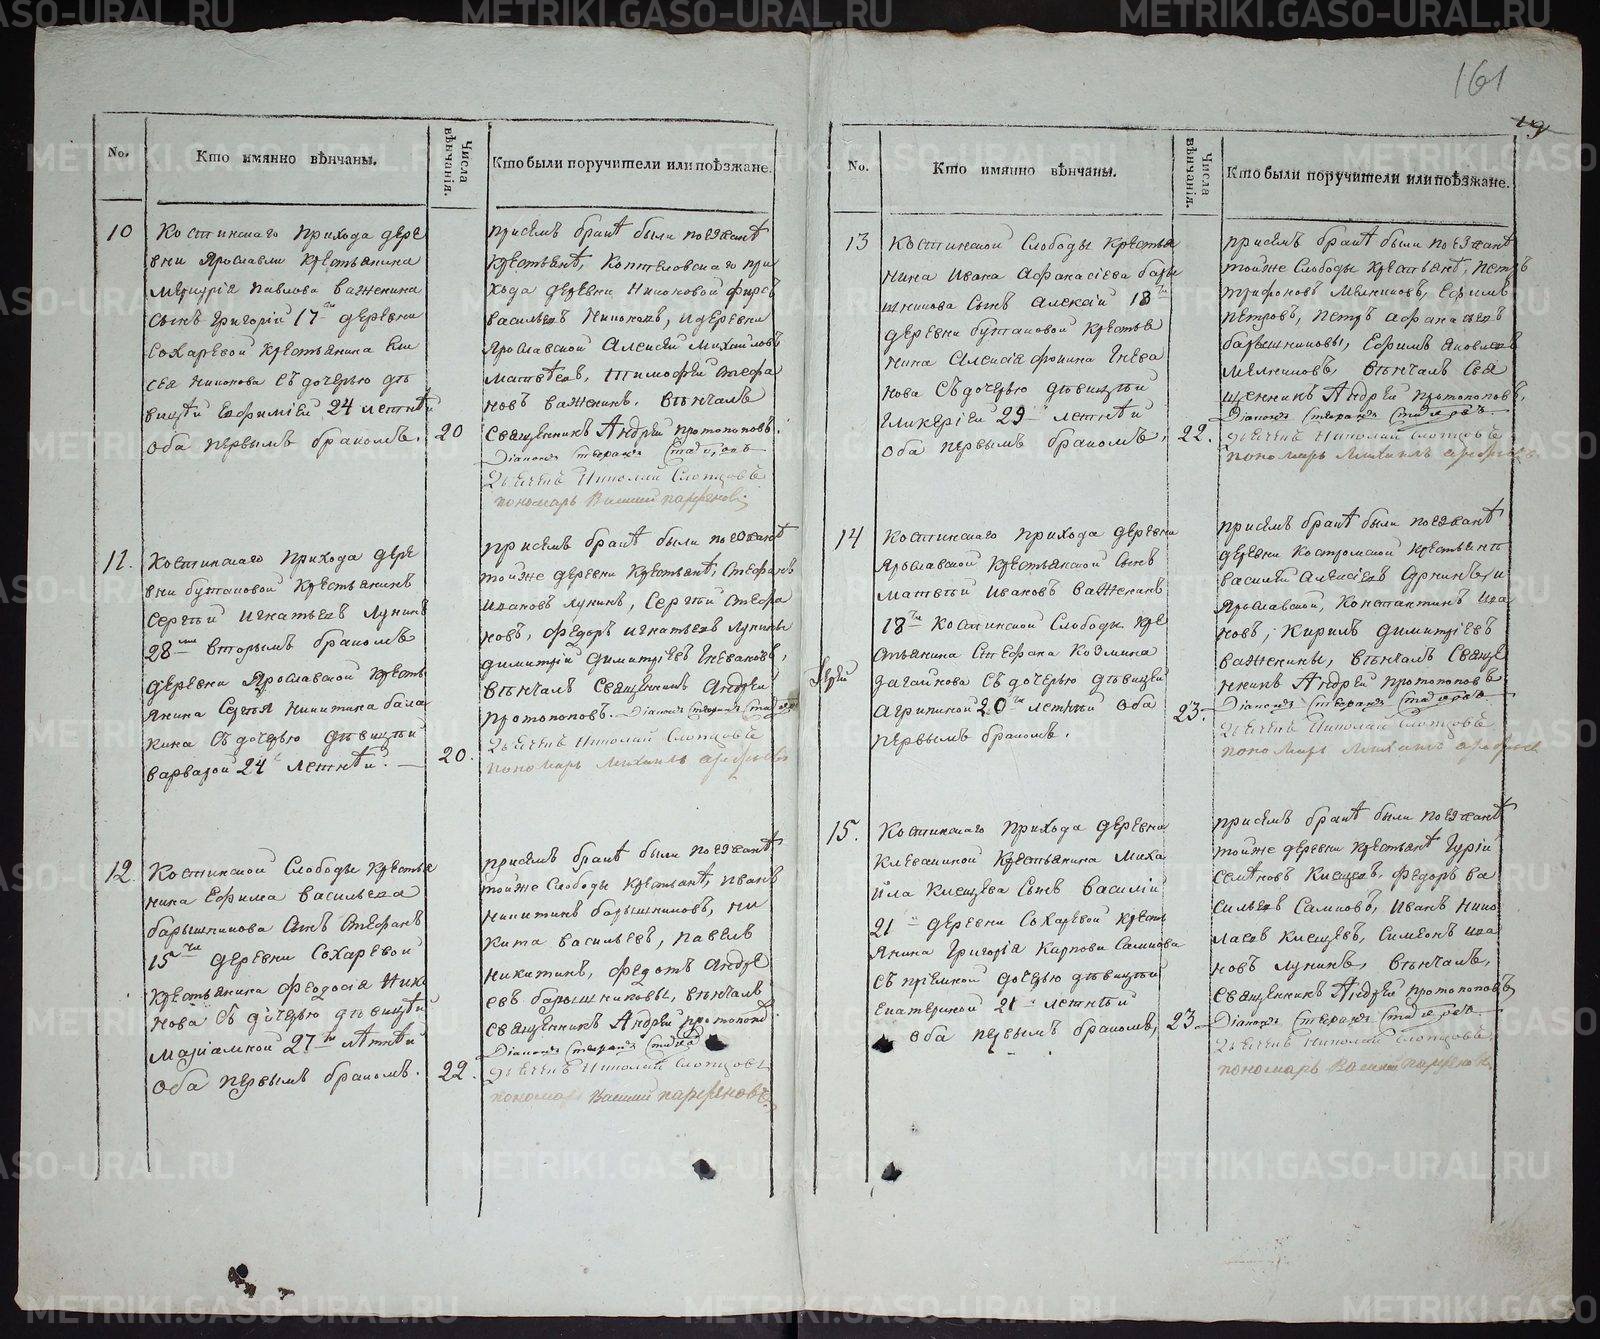 161
19
No.
Кто имянно вѣнчаны.
Числа вѣнчанія.
Кто были поручители или поѣзжане.
10
Костинскаго прихода дере
вни Ярославли крестьянина
Меркурія Павлова Важенина
сынъ Григорій 17 деревни
Сохаревой крестьянина Ели
сея Никонова съ дочерью дѣ
вицѣй Евфиміей 24 летнѣй
оба первымъ бракомъ.
20
при семъ бракѣ были поезжанѣ
крестьянѣ, Коптеловскаго при
хода деревни Никоновой Фирсъ
Васильевъ Никоновъ, и деревни
Ярославской Алексей Михайловъ
Матвѣевъ, Тимофѣй Стефа
новъ Важенинъ. Вѣнчалъ
священникъ Андрей Протопоповъ.
Діаконъ Стефанъ
Дьячекъ Николай Слопцовъ
пономарь Василий Парфеновъ.
11.
Костинскаго прихода дере
вни Бутаковой крестьянинъ
Сергѣй Игнатьевъ Лунинъ
28 вторымъ бракомъ
деревни Ярославской кресть
янина Сергѣя Никитина Бала
кина съ дочерью дѣвицѣй
Варварой 24 летнѣй.
20.
при семъ бракѣ были поезжанѣ
той же деревни крестьянѣ, Стефанъ
Ивановъ Лунинъ, Сергѣй Стефа
новъ, Федоръ Игнатьевъ Лунины
Димитрій Димитріевъ Гневановъ,
вѣнчалъ священникъ Андрей
Протопоповъ. Діаконъ Стефанъ
Дьячекъ Николай Слопцовъ
пономарь Михаилъ Арефьевъ
12.
Костинской слободы крестья
нина Ефима Васильева
Барышникова сынъ Стефанъ
15 деревни Сохаревой
крестьянина Феодосія Нико
нова съ дочерью дѣвицѣй
Маріамной 27 лѣтнѣй
оба первымъ бракомъ.
22.
при семъ бракѣ были поезжанѣ
той же слободы крестьянѣ, Иванъ
Никитинъ Барышниковъ, Ни
кита Васильевъ, Павелъ
Никитинъ, Федотъ Андре
евъ Барышниковы, вѣнчалъ
священникъ Андрей Протопоп
Діаконъ Стефанъ
Дьячекъ Николай Слопцовъ
пономарь Василий Парфеновъ.
No.
Кто имянно вѣнчаны.
Числа вѣнчанія.
Кто были поручители или поѣзжане.
13
Костинской слободы крестья
нина Ивана Афанасіева Бары
шникова сынъ Алексій 18
деревни Бутаковой крестья
нина Алексія Фокина Гнева
нова съ дочерью дѣвицѣй
Гликеріей 29 летнѣй
оба первымъ бракомъ.
22.
при семъ бракѣ были поезжанѣ
той же слободы крестьянѣ, Петръ
Трифоновъ Мелниковъ, Ефимъ
Петровъ, Петръ Афанасьевъ
Барышниковы, Ефимъ Яковлевъ
Мелниковъ, вѣнчалъ свя
щенникъ Андрей Протопоповъ.
Діаконъ Стефанъ
Дьячекъ Николай Слопцовъ
пономарь Михаилъ Арефьевъ
14
Костинскаго прихода деревни
Ярославской крестьянской сынъ
Матвѣй Ивановъ Важенинъ
18 Костинской слободы кре
стьянина Стефана Козмина
Загайнова съ дочерью дѣвицей
Агрипиной 20 летнѣй оба
первымъ бракомъ.
23.
при семъ бракѣ были поезжанѣ
деревни Костромской крестьянѣ
Василѣй Алексіевъ и
Ярославской, Константинъ Ива
новъ, Кирилъ Димитріевъ
Важенины, вѣнчалъ свяще
нникъ Андрей Протопоповъ
Діаконъ Стефанъ
Дьячекъ Николай Слопцовъ
пономарь Михаилъ Арефьев
15.
Костинскаго прихода деревни
Клевакиной крестьянина Миха
йла Клещева сынъ Василій
21 деревни Сохаревой кресть
янина Григорія Карпова Саликова
съ пріемной дочерью дѣвицѣй
Екатериной 21 летнѣй
оба первымъ бракомъ,
23
при семъ бракѣ были поезжанѣ
той же деревни крестьянѣ Гурій
Семѣновъ Клещевъ, Федоръ Ва
сильевъ Саликовъ, Иванъ Нико
лаевъ Клещевъ, Симеонъ Ива
новъ Лунинъ, вѣнчалъ,
священникъ Андрей Протопоповъ
Діаконъ Стефанъ
Дьячекъ Николай Слопцовъ
пономарь Василий Парфеновъ
METRIKI.GASO-URAL.RU